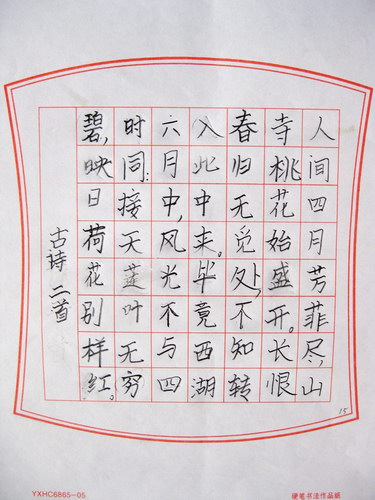 人间四月芳菲尽,山
寺桃花始盛开。长恨
春归无觅处,不知转
入此中来。毕竟西湖
六月中,风光不与四
时同;接天莲叶无穷
碧,映日荷花别样红。
古诗二首
15
YXHC6865-05
硬笔书法作品纸